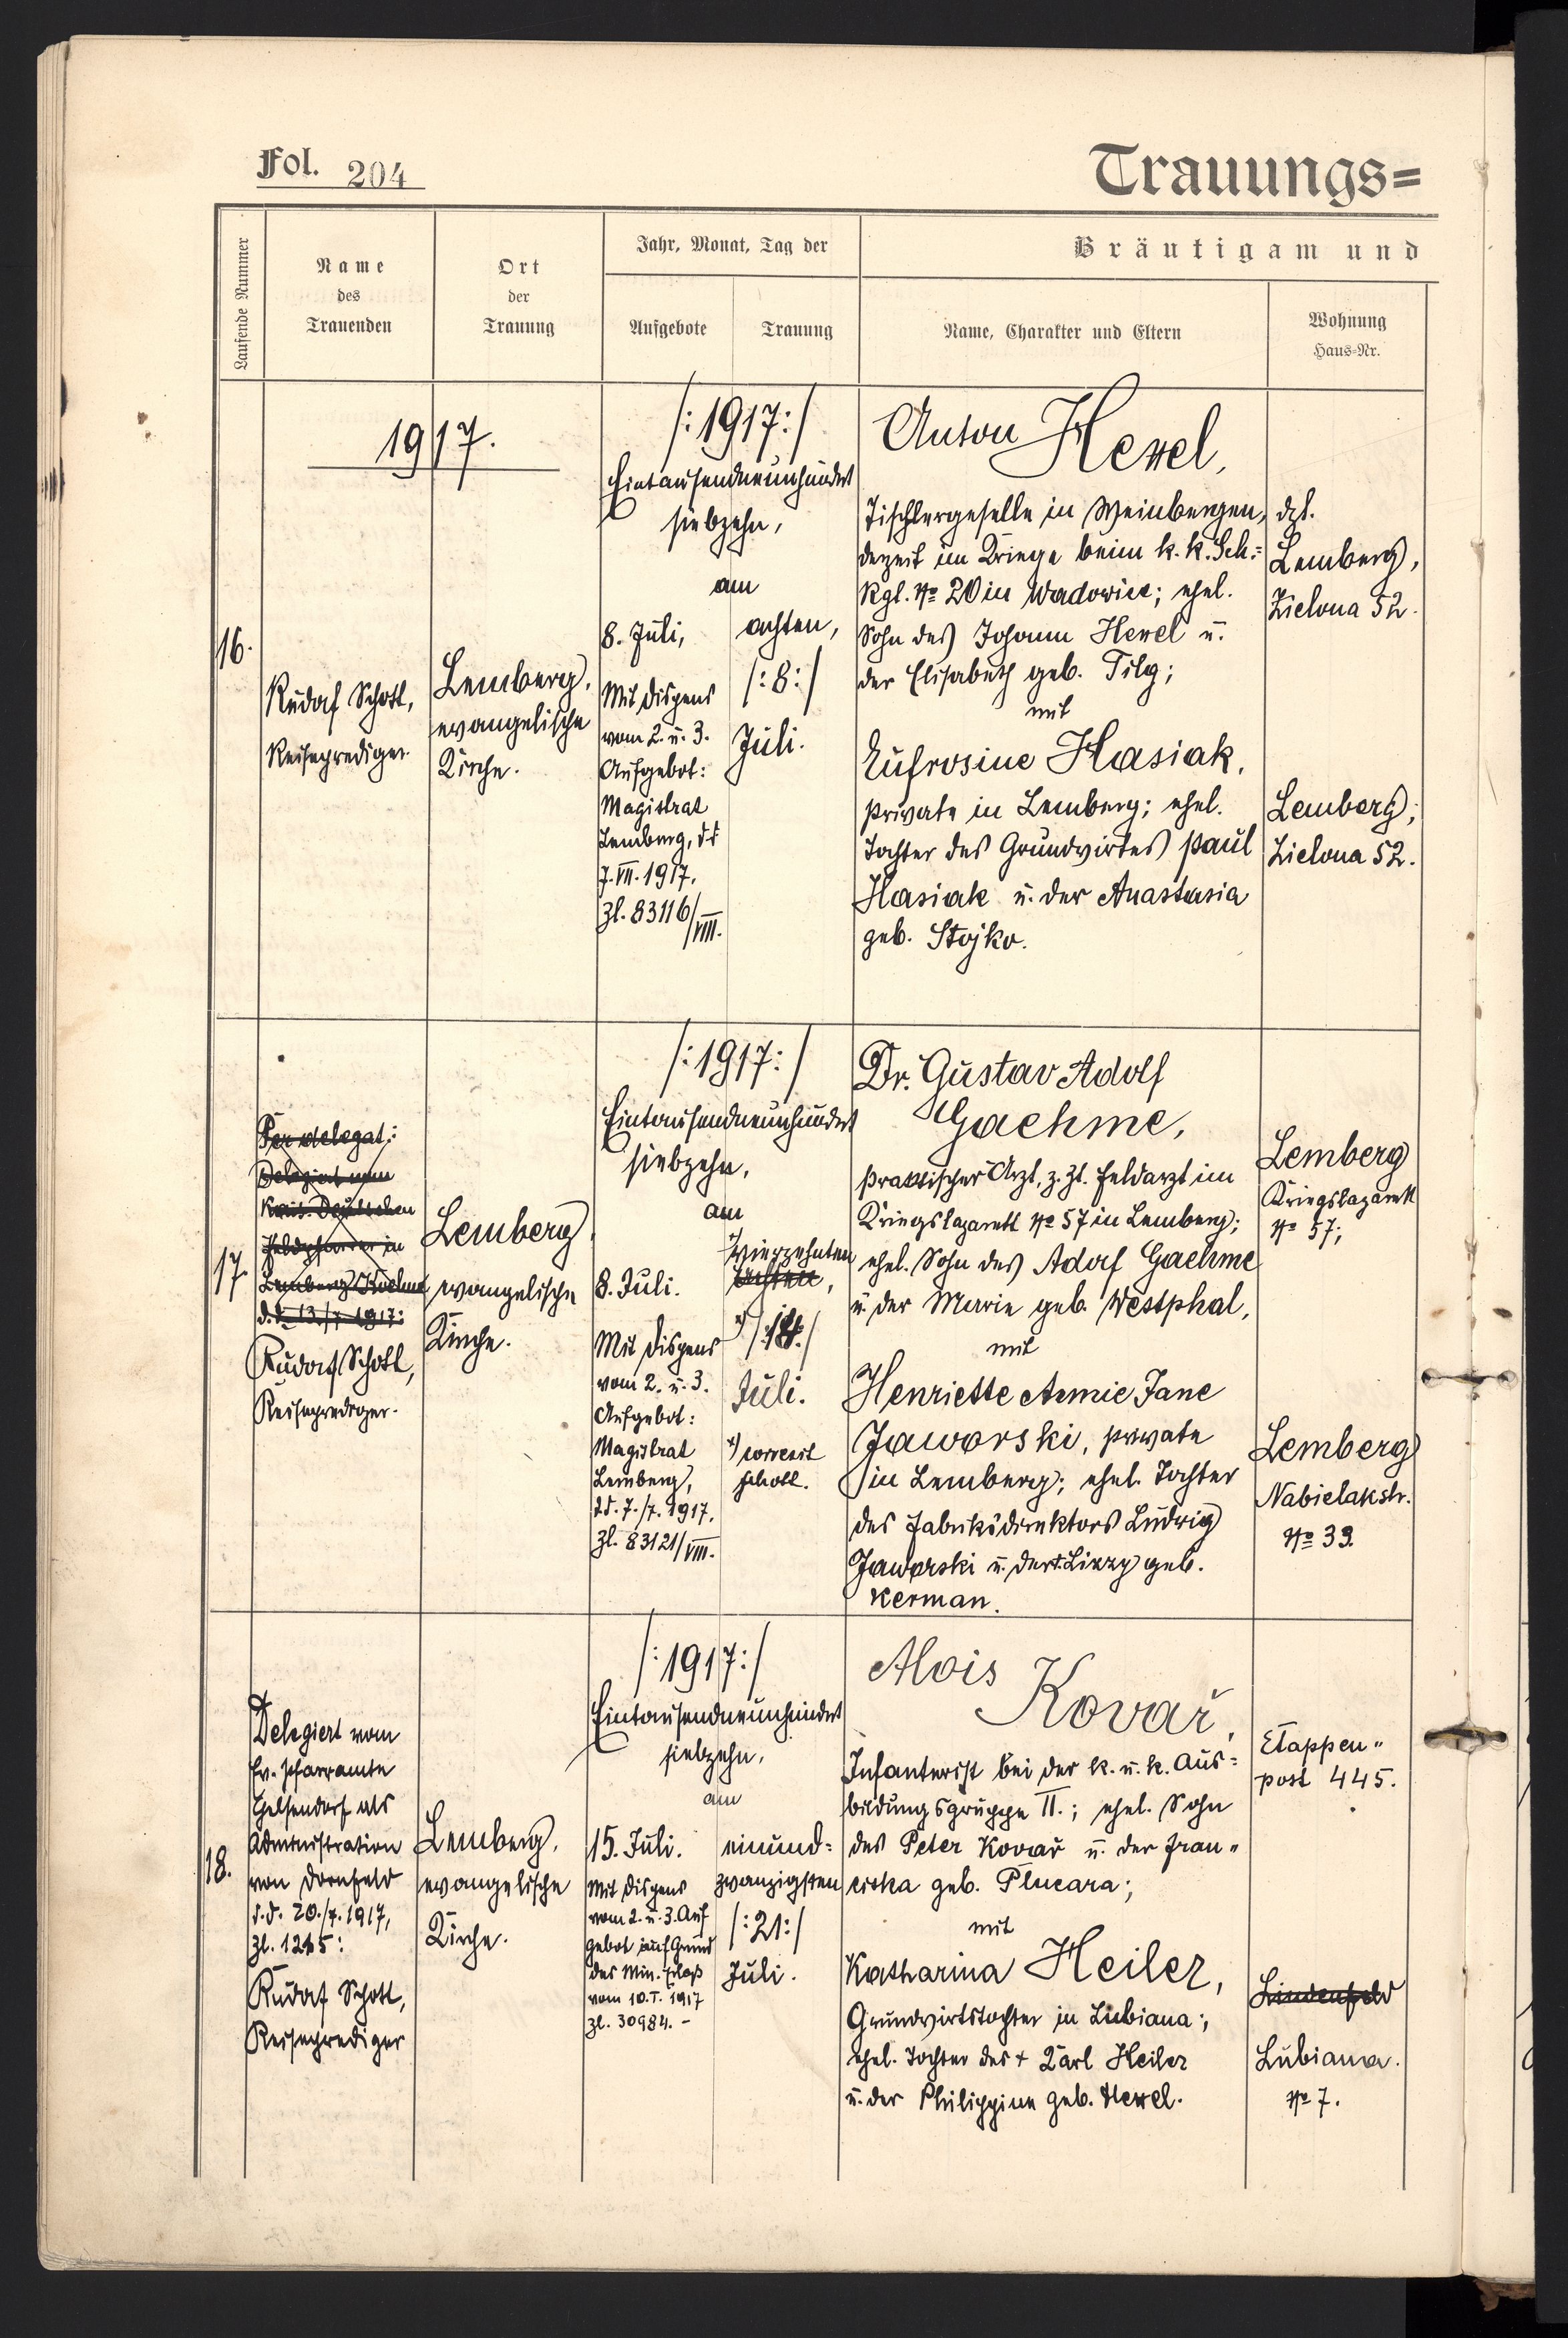 Fol. 204
Trauungs=
Laufende Nummer
Name
des
Trauenden
Ort
der
Trauung
Jahr, Monat, Tag der
Aufgebote
Trauung
Bräutigam und
Name, Charakter und Eltern
Wohnung
Haus=Nr.
1917.
16.
Rudolf Schott,
Reiseprediger
Lemberg,
evangelische
Kirche.
/:1917:/
Eintausendneunhundert
siebzehn,
am
8. Juli,
Mit Dispens
vom 2. u. 3.
Aufgebot:
Magistrat
Lemberg, dd
7. VII. 1917.
Zl. 83116/VIII.
achten,
/:8:/
Juli.
Anton Hexel,
Tischlergeselle in Weinbergen,
derzeit im Kriege beim k. k. Sch.=
Rgt. No 20 in Wadowice; ehel.
Sohn des Johann Hexel u.
der Elisabeth geb. Tilg;
mit
Eufrosine Hasiak,
Private in Lemberg; ehel.
Tochter des Grundwirtes Paul
Hasiak u. der Anastasia
geb. Stojko.
dzt.
Lemberg,
Zielona 52.
Lemberg,
Zielona 52.
17.
Per delegat:
Delegiert vom
Kais. Deutschen
Feldpfarrer in
Lemberg
d.d. 13./7. 1917:
Rudolf Schott,
Reiseprediger.
Lemberg,
evangelische
Kirche.
/:1917:/
Eintausendneunhundert
siebzehn,
am
8. Juli.
Mit Dispens
vom 2. u. 3.
Aufgebot:
Magistrat
Lemberg,
dd. 7./7. 1917.
Zl. 83121/VIII.
vierzehnten
achten,
x) /:14:/
Juli.
x) correxit
Schott.
Dr. Gustav Adolf
Gaehme,
praktischer Arzt, z. Zt. Feldarzt im
Kriegslazarett No 57 in Lemberg;
ehel. Sohn des Adolf Gaehme
u. der Marie geb. Westphal,
mit
Henriette Annie Jane
Jaworski, Private
in Lemberg; ehel. Tochter
des Fabriksdirektors Ludwig
Jaworski u. der + Lizzy geb.
Kerman.
Lemberg
Kriegslazarett
No 57;
Lemberg
Nabielakstr.
No 39.
18.
Delegiert vom
Ev. Pfarramte
Gelsendorf als
Administration
von Dornfeld
d.d. 20./7. 1917,
Zl. 1215:
Rudolf Schott,
Reiseprediger
Lemberg,
evangelische
Kirche.
/:1917:/
Eintausendneunhundert
siebzehn,
am
15. Juli.
Mit Dispens
vom 2. u. 3. Auf
gebot auf Grund
des Min. Erlaß
vom 10. I. 1917
Zl. 30984. –
einund=
zwanzigsten
/:21:/
Juli.
Alois
Kovař,
Infanterist bei der k. u. k. Aus=
bildungsgruppe II.; ehel. Sohn
des Peter Kovař u. der Fran„
ciska geb. Plucara;
mit
Katharina Heiler,
Grundwirtstochter in Lubiana;
ehel. Tochter des + Karl Heiler
u. der Philippine geb. Hexel.
Etappen„
post 445.
Lindenfeld
Lubiana.
No 7.